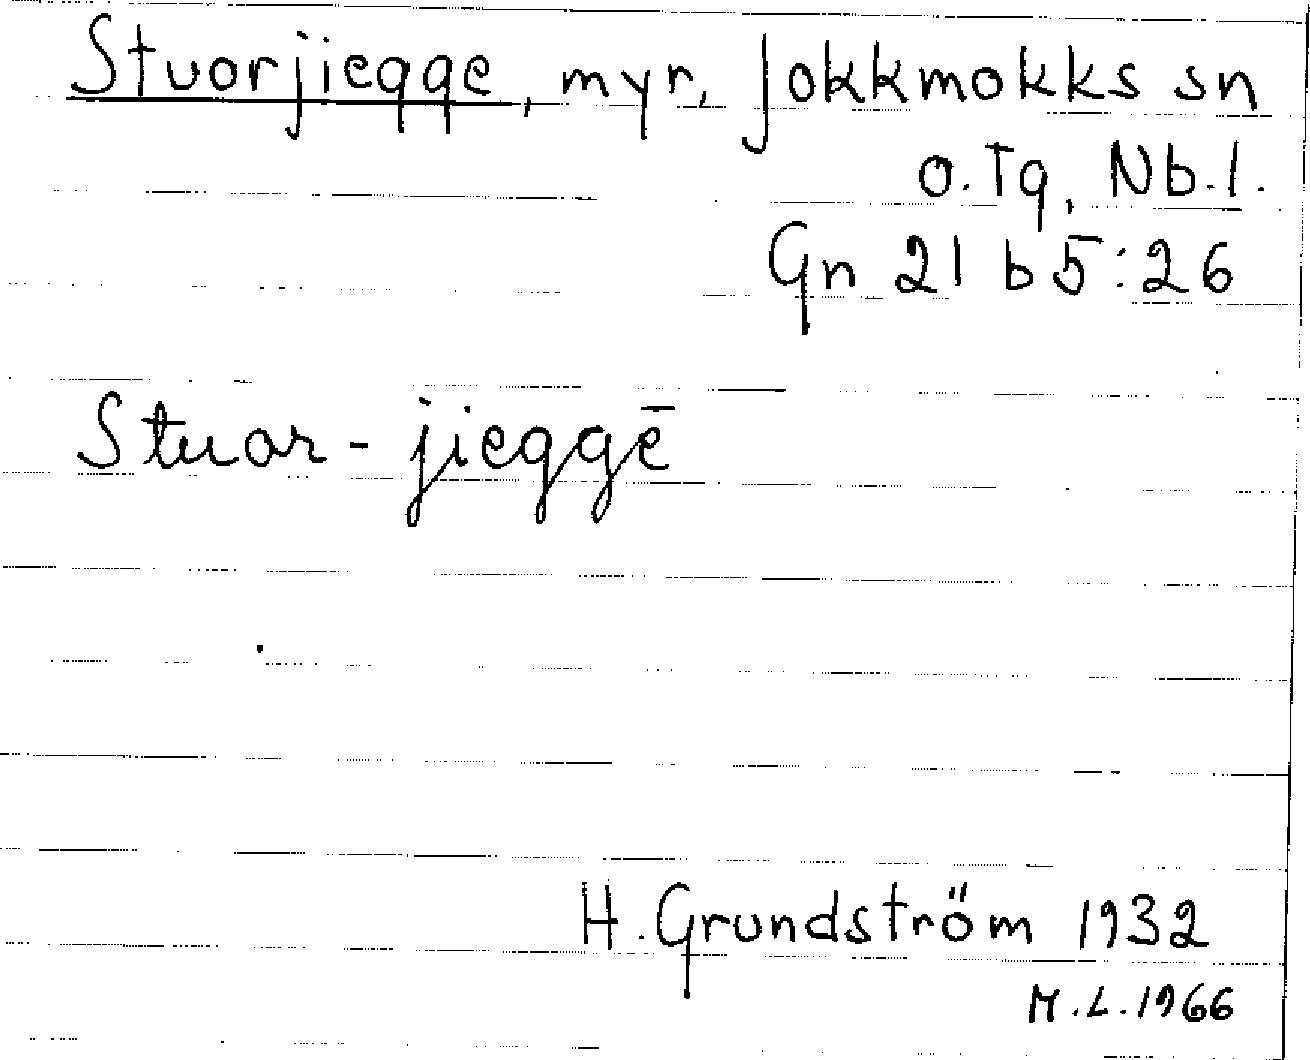 Stuorjiegge, myr, Jokkmokks sn
o. Tg, Nb. l.
Gn 21 b 5:26
Stuor-jieggē
H. Grundström 1932
M.L. 1966